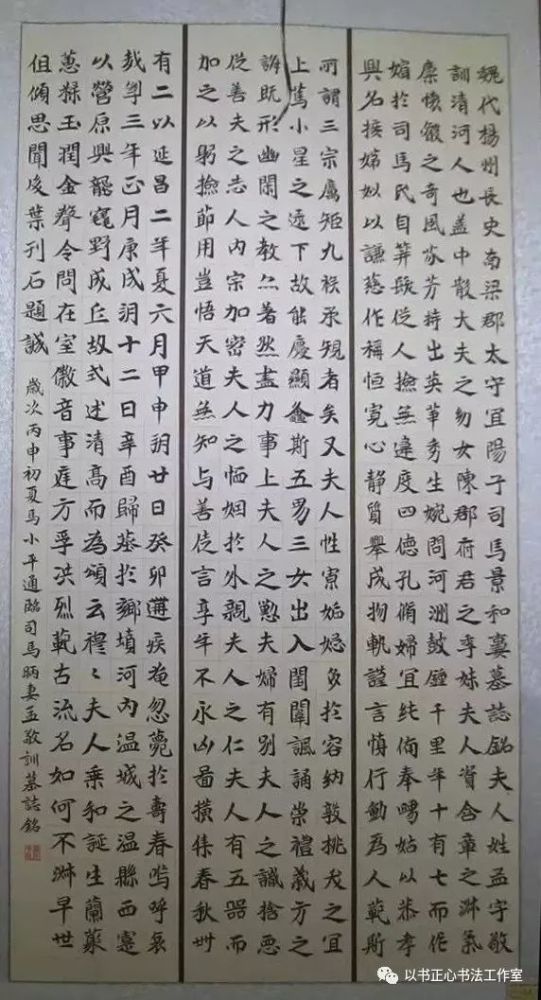 魏代楊州長史南梁郡太守宜陽子司馬景和妻墓誌銘夫人姓孟字敬
訓清河人也盖中散大夫之幼女陳郡府君之季妹夫人資含章之淋氣
稟懷叡之奇風芬芳特出英華秀生婉問河洲鼓鍾千里年十有七而作
嬪於司馬氏自笄髮從人撿無違度四德孔脩婦宜純備奉暘姑以恭孝
興名接娣姒以謙慈作稱恒寬心静質舉成物軌謹言慎行動為人範斯
所謂三宗厲矩九族承規者矣又夫人性寡妬媢多於容納敦桃夭之宜
上篤小星之逮下故能慶顯螽斯五男三女出入閨闈諷誦崇禮義方之
誨既形幽閑之教亦著然盡力事上夫人之懃夫婦有別夫人之識捨惡
從善夫之志人內宗加密夫人之恤姻於外親夫人之仁夫人有五器而
加之以躬撿節用豈悟天道無知与善徒言享年不永凶啚橫集春秋卌
有二以延昌二年夏六月甲申朔廿日癸卯遘疾奄忽薨於壽春嗚呼哀
哉粤三年正月庚戌朔十二日辛酉歸葬於鄉墳河內温城之温縣西
以營原興寵窀野成丘故式述清高而為頌云穆〻夫人乘和誕生蘭蘂
蕙糅玉潤金聲令問在室徽音事庭方孚洪烈範古流名如何不淋早世
徂傾思聞後葉刊石題誠
歲次丙申初夏馬小平通臨司馬昞妻孟敬訓墓誌銘
以书正心书法工作室